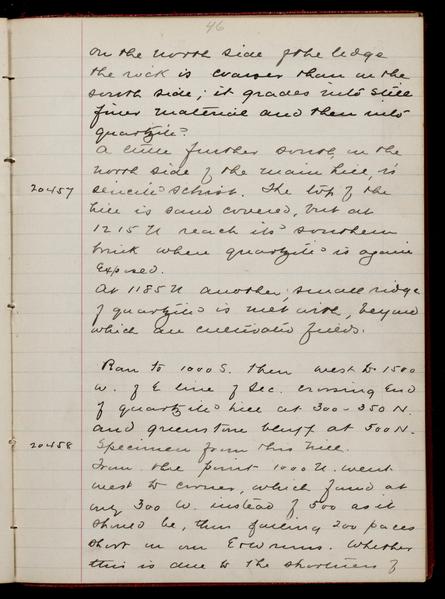 46
On the north side of the ledge
the rock is coarser than on the
south side; it grades into still
finer material and then into
quartzite.
A little further south, on the
north side of the main hill, is
20457 sericitic schist. The top of the
hill is sand covered, but at
1215 N reach its southern
brink when quartzite is again
exposed.
At 1185 N another, small ridge
of quartzite is met with, beyond
which are cultivated fields.
Ran to 1000 S. then west to 1500
W. of E line of Sec. crossing End
of quartzite hill at 300-350 N.
and greenstone bluff at 500 N.
20458 Specimen from this hill.
From the point 1000 N. went
west to corner, which found at
only 300 W. instead of 500 as it
should be, thus falling 200 paces
short in our E & W runs. Whether
this is due to the shortness of